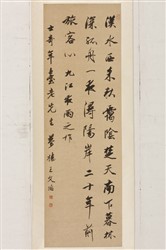 漢水西来秋靄陰楚天南下暮林
深孤舟一夜潯陽岸二十年前
旅客心 九江夜雨之作
年 老先生 夢樓王文治